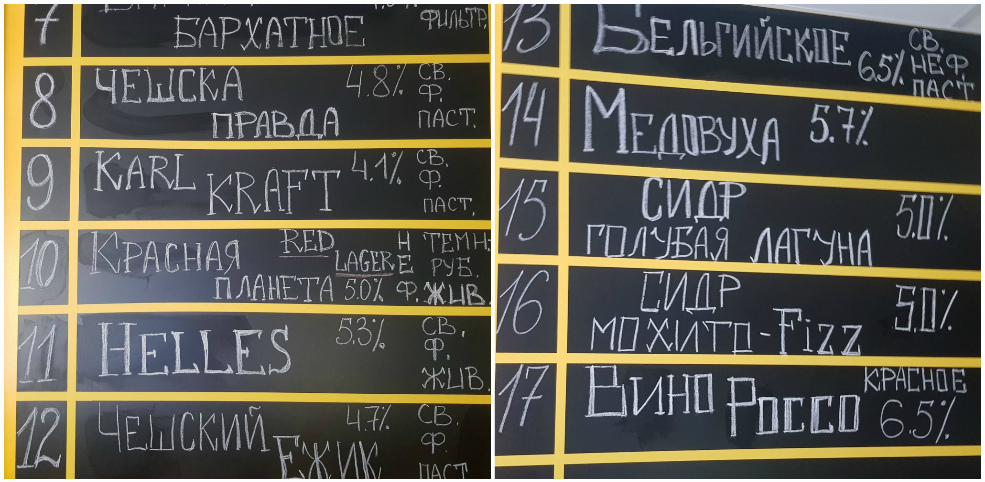 7 ФИЛЬТР.
БАРХАТНОЕ
8 ЧЕШСКА 4.8% СВ.
Ф.
ПРАВДА ПАСТ.
9 KARL 4.1% СВ.
KRAFT Ф.
ПАСТ.
10 КРАСНАЯ RED Н ТЕМН.
LAGER Е РУБ.
ПЛАНЕТА 5.0% Ф. ЖИВ.
11 HELLES 5.3% СВ.
Ф.
ЖИВ.
12 ЧЕШСКИЙ 4.7% СВ.
ЁЖИК Ф.
ПАСТ
13 БЕЛЬГИЙСКОЕ СВ.
6.5% НЕ Ф.
ПАСТ
14 МЕДОВУХА 5.7%
15 СИДР 5.0%
ГОЛУБАЯ ЛАГУНА
16 СИДР 5.0%
МОХИТО-Fizz
17 ВИНО РОССО КРАСНОЕ
6.5%